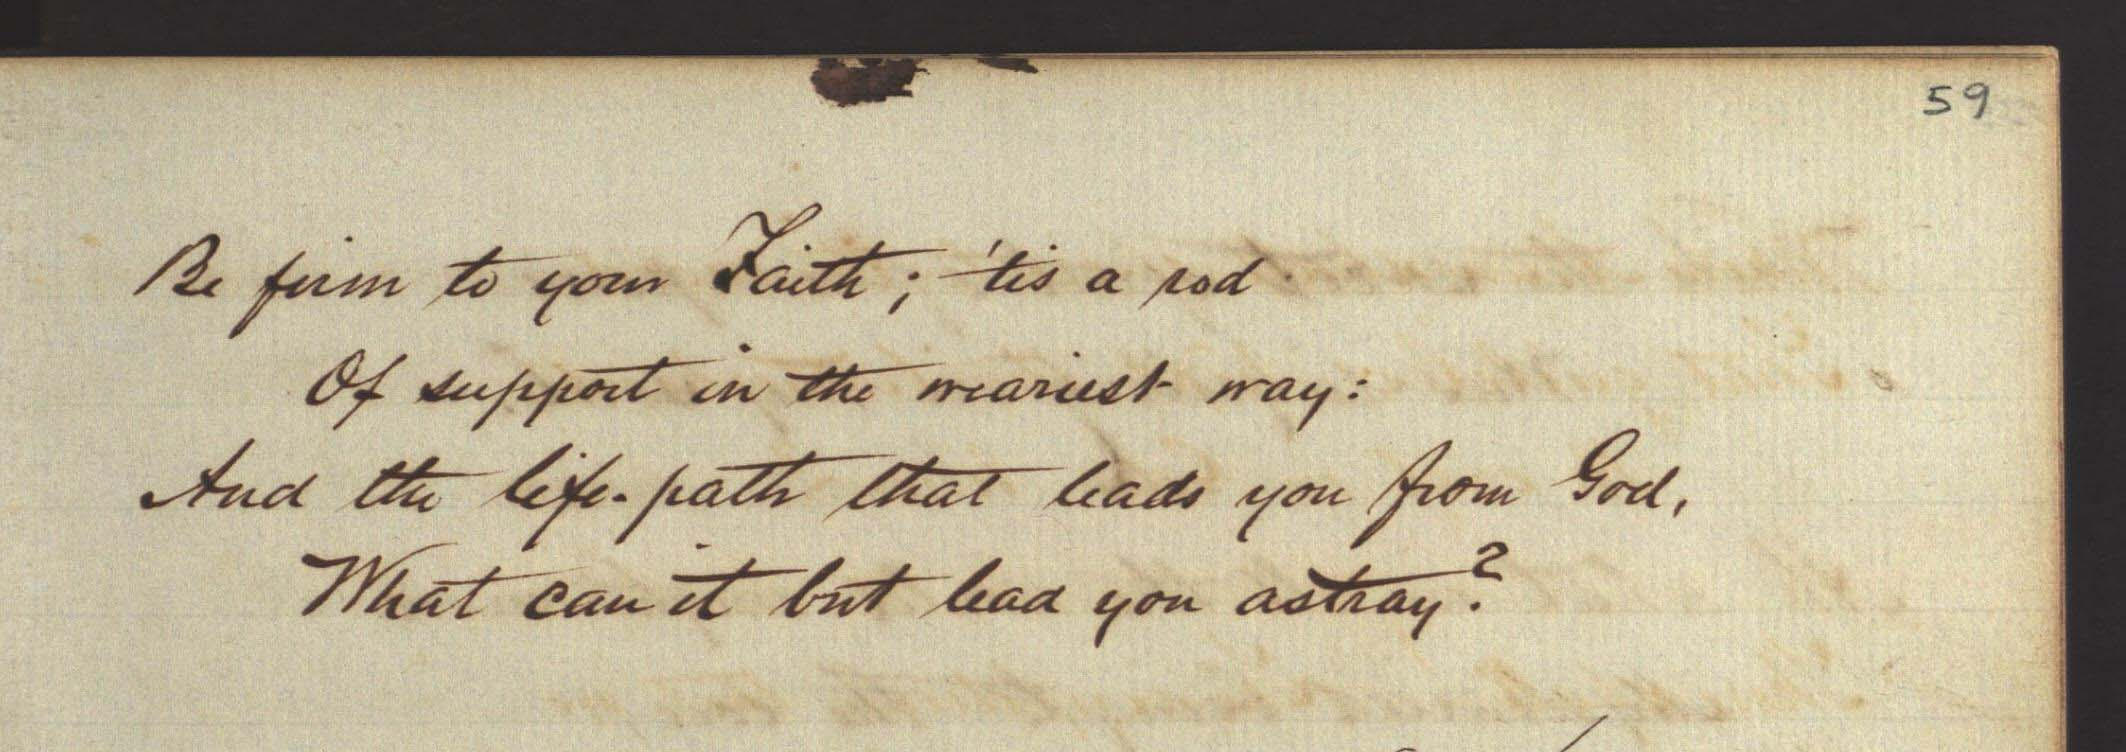 59
Be firm to your Faith; 'tis a rod
Of support in the weariest way:
And the life-path that leads you from God,
What can it but lead you astray?